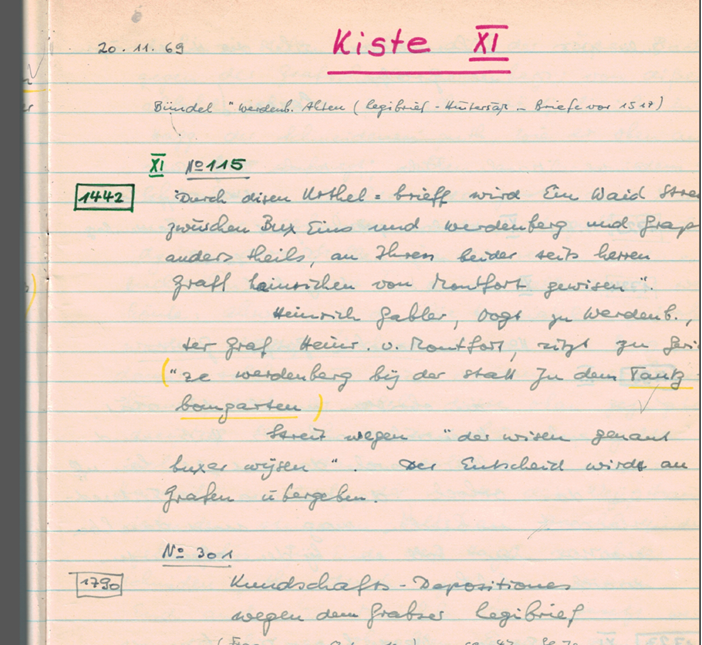 20.11.69
Kiste XI
Bündel "Werdenb. Akten (Legibrief - - Briefe vor 1517)
XI No 115
1442
"Durch disen Urthel = brieff wird Ein Waid
zwüschen Bux Eins und werdenberg und Grap
anders theils, an Ihren beider seits herren
Graff hainrichen von Montfort gewisen".
Heinrich Gabler, Vogt zu Werdenb.,
der Graf Heinr. v. Montfort, sitzt zu
("ze werdenberg bij der statt In dem Tantz
bomgarten)
Streit wegen "der wisen genant
buxer wijsen". Der Entscheid wird an
Grafen übergeben.
No 301
1790
Kundschafts - Depositiones
wegen dem Grabser Legibrief